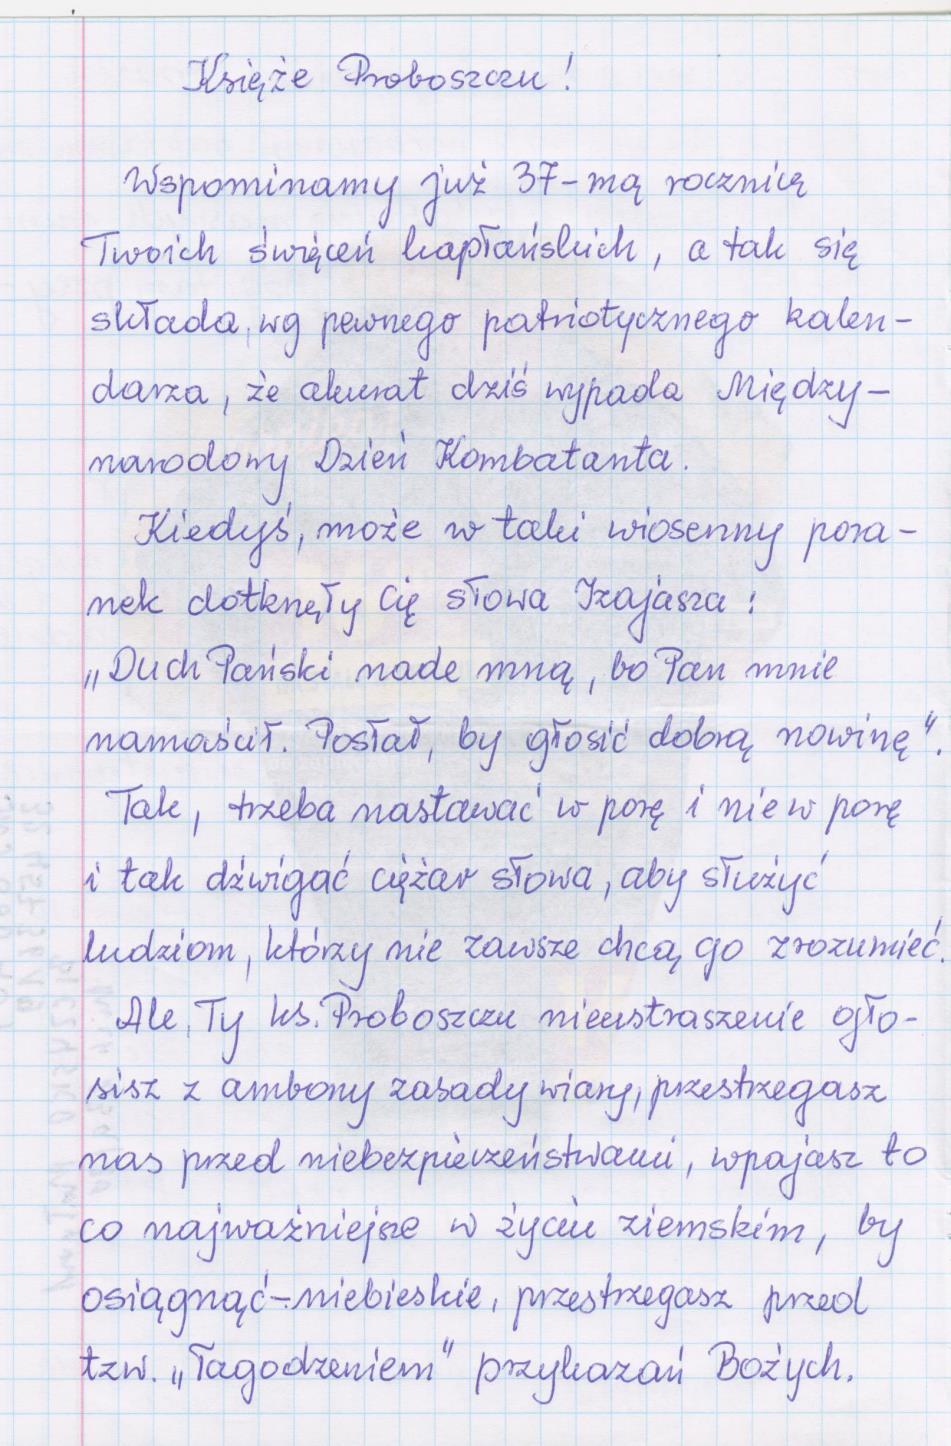 Księże Proboszczu!
Wspominamy już 37-mą rocznicę
Twoich święceń kapłańskich, a tak się
składa, wg pewnego patriotycznego kalen-
darza, że akurat dziś wypada Między-
narodowy Dzień Kombatanta.
Kiedyś, może w taki wiosenny pora-
nek dotknęły Cię słowa Izajasza:
„Duch Pański nade mną, bo Pan mnie
namaścił. Posłał, by głosić dobrą nowinę".
Tak, trzeba nastawać w porę i nie w porę
i tak dźwigać ciężar słowa, aby służyć
ludziom, którzy nie zawsze chcą go zrozumieć.
Ale, Ty ks. Proboszczu nieustraszenie ogło-
sisz z ambony zasady wiary, przestrzegasz
nas przed niebezpieczeństwami, wpajasz to
co najważniejsze w życiu ziemskim, by
osiągnąć - niebieskie, przestrzegasz przed
tzw. „łagodzeniem" przykazań Bożych.